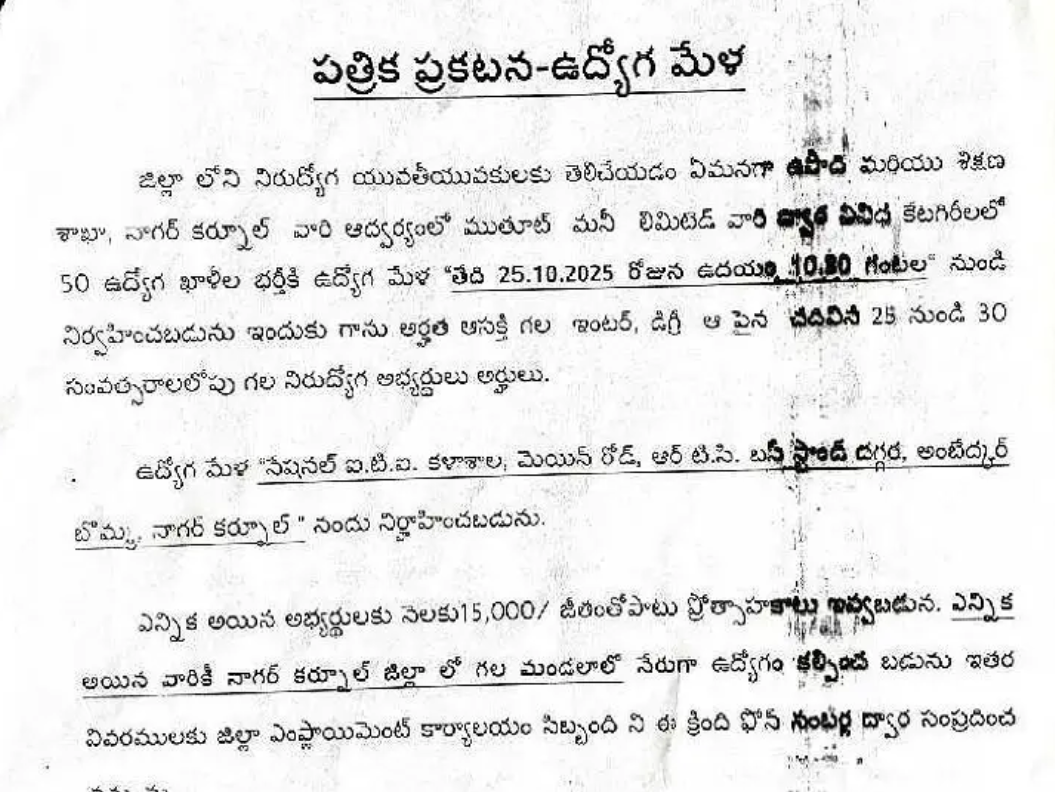 పత్రిక ప్రకటన-ఉద్యోగ మేళ
జిల్లా లోని నిరుద్యోగ యువతీయువకులకు తెలిచేయడం ఏమనగా ఉపాది మరియు శిక్షణ
శాఖా, నాగర్ కర్నూల్ వారి ఆద్వర్యంలో ముతూట్ మనీ లిమిటెడ్ వారి ద్వార వివిధ కేటగిరీలలో
50 ఉద్యోగ ఖాళీల భర్తీకి ఉద్యోగ మేళ "తేది 25.10.2025 రోజున ఉదయం 10.30 గంటల" నుండి
నిర్వహించబడును ఇందుకు గాను అర్హత ఆసక్తి గల ఇంటర్, డిగ్రీ ఆ పైన చదివిన 25 నుండి 30
సంవత్సరాలలోపు గల నిరుద్యోగ అభ్యర్థులు అర్హులు.
ఉద్యోగ మేళ "నేషనల్ ఐ.టి.ఐ. కళాశాల, మెయిన్ రోడ్, ఆర్ టి.సి. బస్ స్టాండ్ దగ్గర, అంబేద్కర్
బొమ్మ, నాగర్ కర్నూల్ " నందు నిర్హాహించబడును.
ఎన్నిక అయిన అభ్యర్థులకు నెలకు15,000/ జీతంతోపాటు ప్రోత్సాహకాలు ఇవ్వబడున. ఎన్నిక
అయిన వారికీ నాగర్ కర్నూల్ జిల్లా లో గల మండలాలో నేరుగా ఉద్యోగం కల్పించ బడును ఇతర
వివరములకు జిల్లా ఎంప్లాయిమెంట్ కార్యాలయం సిబ్బంది ని ఈ క్రింది ఫోన్ నంబర్ల ద్వార సంప్రదించ